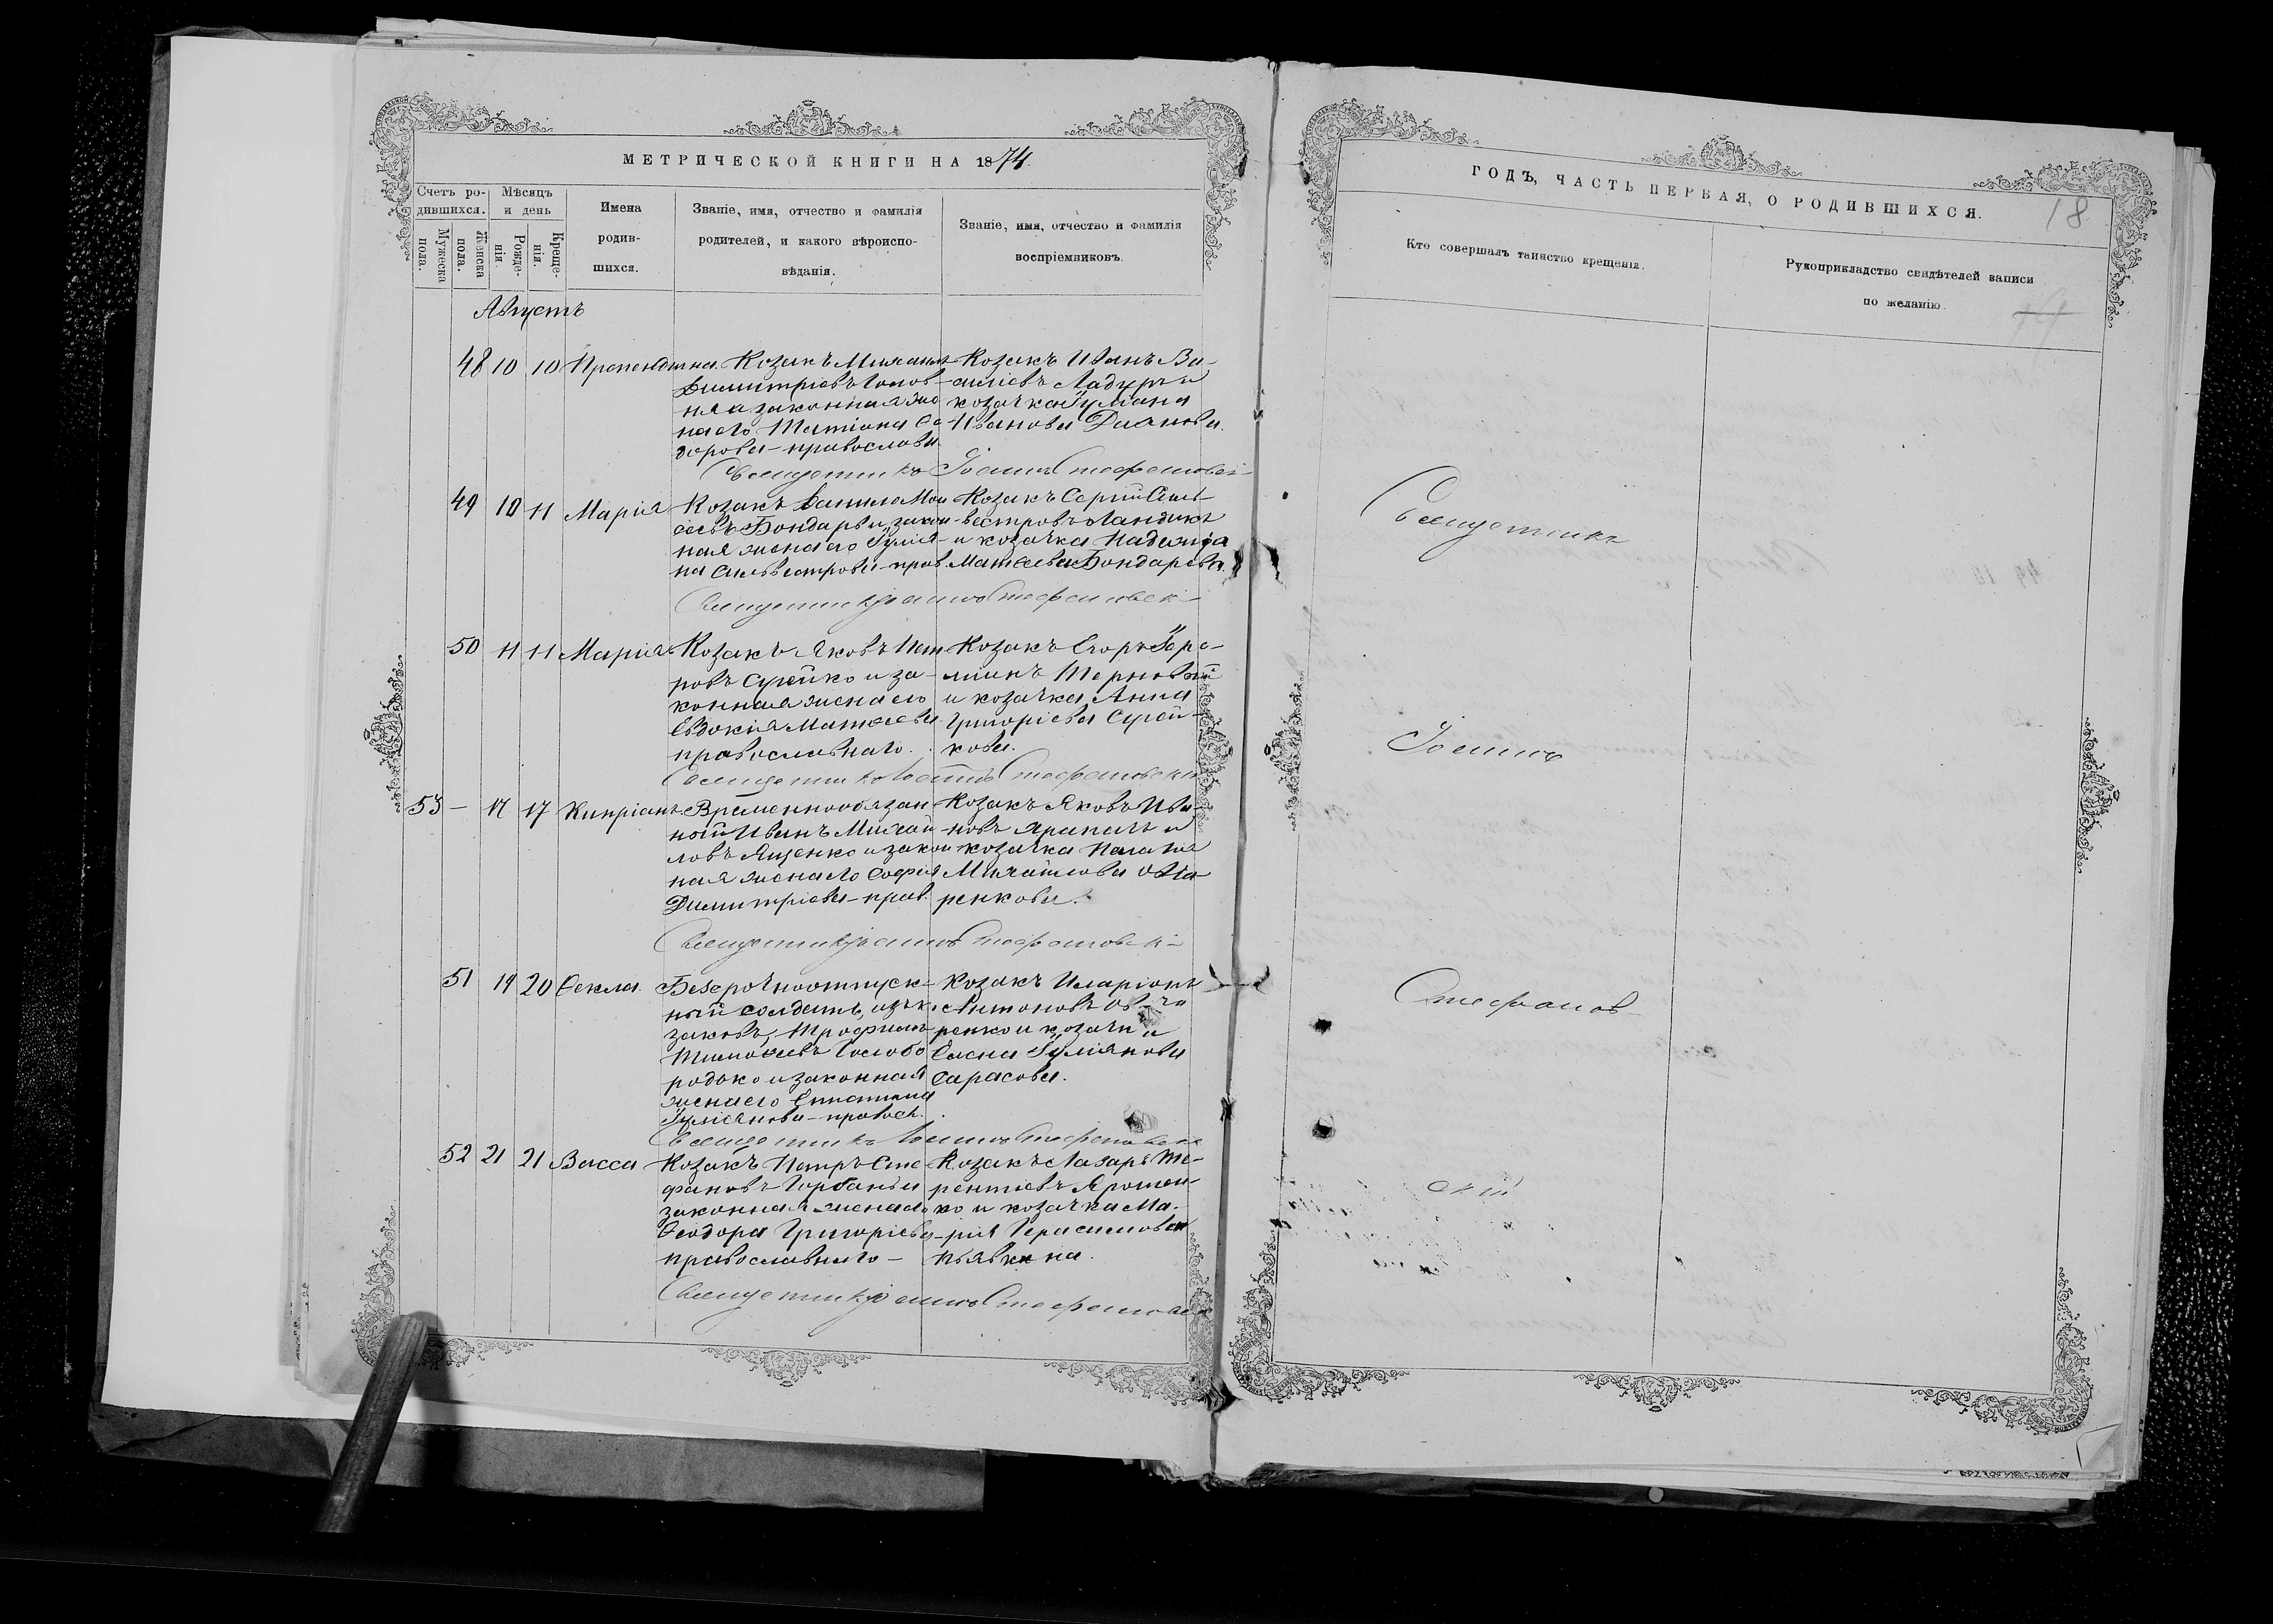 МЕТРИЧЕСКОЙ КНИГИ НА 1874
Счетъ ро-
дившихся.
Мужеска
пола.
Женска
пола.
Мѣсяцъ
и день
Рожде-
нія.
Креще-
нія.
Имена
родив-
шихся.
Званіе, имя, отчество и фамилія
родителей, и какого вѣроиспо-
вѣданія.
Званіе, имя, отчество и фамилія
воспріемниковъ.
Августъ
48 10 10 Козакъ Михаилъ
Димитріевъ Голов-
ня и законная же
на его Татіана Ѳе
дорова - православн.
Козакъ Иванъ Ва-
силіевъ Ладуръ и
козачка Іуліана
Иванова
Священникъ Іоаннъ Стефановскій
49 10 11 Марія
Козакъ Данило Мои
сеевъ Бондарь и закон-
ная жена его Іуліа-
на Сильвестрова - прав.
Козакъ Сергій Силь-
вестровъ Ландикъ
и козачка Надежда
Матѳеева Бондарева.
Священникъ Іоаннъ Стефановскій
50 11 11 Марія
Козакъ Яковъ Пет
ровъ Сурейко и за-
конная жена его
Евдокія Матѳеева
православнаго.
Козакъ Егоръ Іере-
міинъ Терновый
и козачка Анна
Григоріева Сурей-
кова.
Священникъ Іоаннъ Стефановскій
53 - 17 17 Кипріанъ
Временнообязан
ный Иванъ Михай
ловъ Яценко и закон
ная жена его Софія
Димитріева - прав.
Козакъ Яковъ Ива-
новъ и
козачка Пелагія
Михайлова Овча-
ренкова.
Священникъ Іоаннъ Стефановскій
51 19 20 Ѳекла.
Безсрочноотпуск-
ный солдатъ, изъ ко
заковъ, Трофимъ
ТимоѳеевъГолобо
родько и законная
жена его
Іуліанова - правосл.
Козакъ Иларіонъ
Антоновъ Овча
ренко и козачка
Елена Іуліанова
Сарасова.
Священникъ Іоаннъ Стефановскій
52 21 21 Васса
Козакъ Петръ Сте
фановъ Горбань и
законная жена его
Ѳеодора Григоріева
православнаго -
Козакъ Лазарь Те-
рентіевъ Ярошен-
ко и козачка Ма-
рія Герасимова
Пьявкина.
Священникъ Іоаннъ Стефановскій
ГОДЪ, ЧАСТЬ ПЕРВАЯ, О РОДИВШИХСЯ.
18
Кто совершалъ таинство крещенія.
Рукоприкладство свидѣтелей записи
по желанію.
Священникъ
Іоаннъ
Стефанов
скій